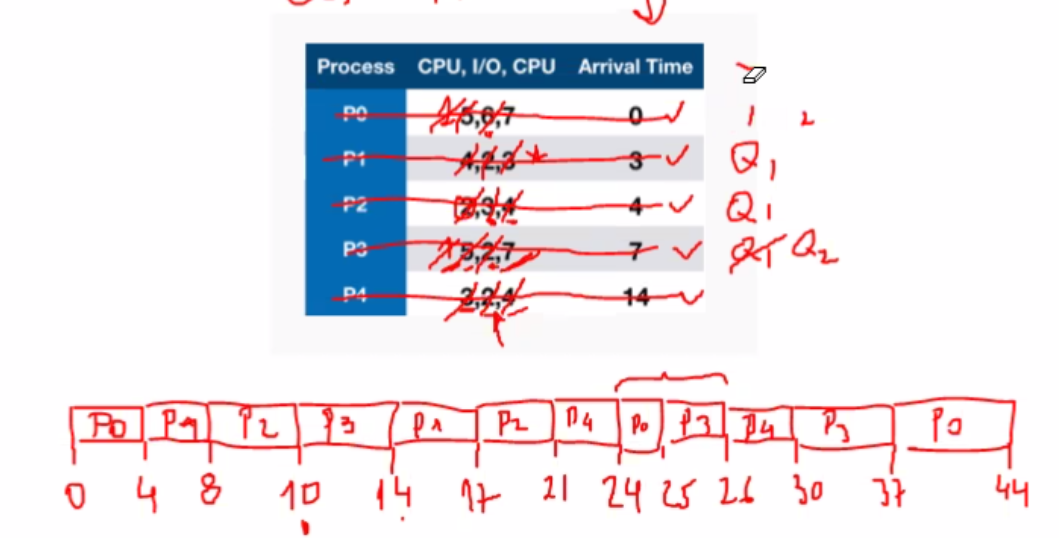 Process CPU, I/O, CPU Arrival Time
P0 5,6,7 0 1 2
P1 4,2,3 * 3 Q1
P2 2,3,4 4 Q1
P3 5,2,7 7 Q1 Q2
P4 3,2,4 14
P0 P1 P2 P3 P1 P2 P4 P0 P3 P4 P3 P0
0 4 8 10 14 17 21 24 25 26 30 37 44